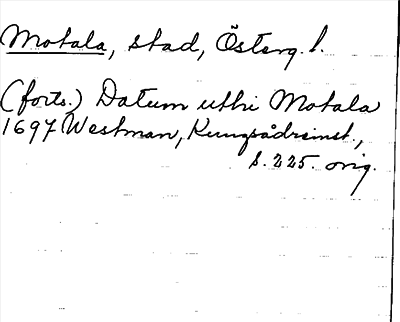 Motala, stad, Österg. l.
(forts.) Datum uthi Motala
1697 Westman, Kungsådreinst.,
s. 225. orig.